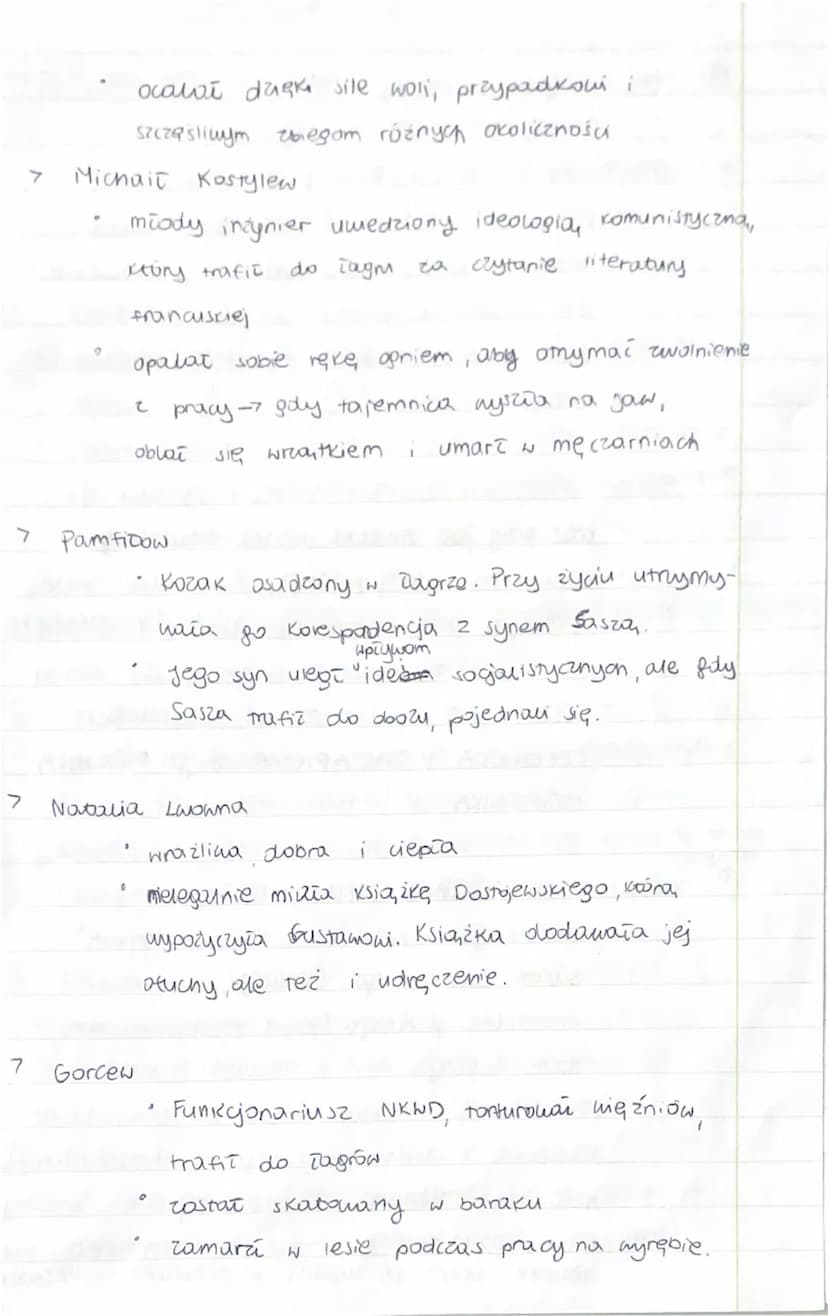 • ocalał dzięki sile woli, przypadkowi i
szczęśliwym zbiegom różnych okoliczności
> Michaił Kostylew
• młody inżynier uwiedziony ideologią komunistyczną,
który trafił do łagru za czytanie literatury
francuskiej
• opalał sobie rękę ogniem, aby otrzymać zwolnienie
z pracy → gdy tajemnica wyszła na jaw,
oblał się wrzątkiem i umarł w męczarniach
> Pamfiłow
• Kozak osadzony w łagrze. Przy życiu utrzymy-
wała go korespondencja z synem Saszą.
• Jego syn uległ wpływom idei socjalistycznych, ale gdy
Sasza trafił do obozu, pojednali się.
> Natalia Lwowna
• wrażliwa dobra i ciepła
• nielegalnie miała książkę Dostojewskiego, którą
wypożyczyła Gustawowi. Książka dodawała jej
otuchy, ale też i udręczenie.
> Gorcew
• Funkcjonariusz NKWD, torturował więźniów,
trafił do łagrów
• został skatowany w baraku
• zamarzł w lesie podczas pracy na wyrębie.